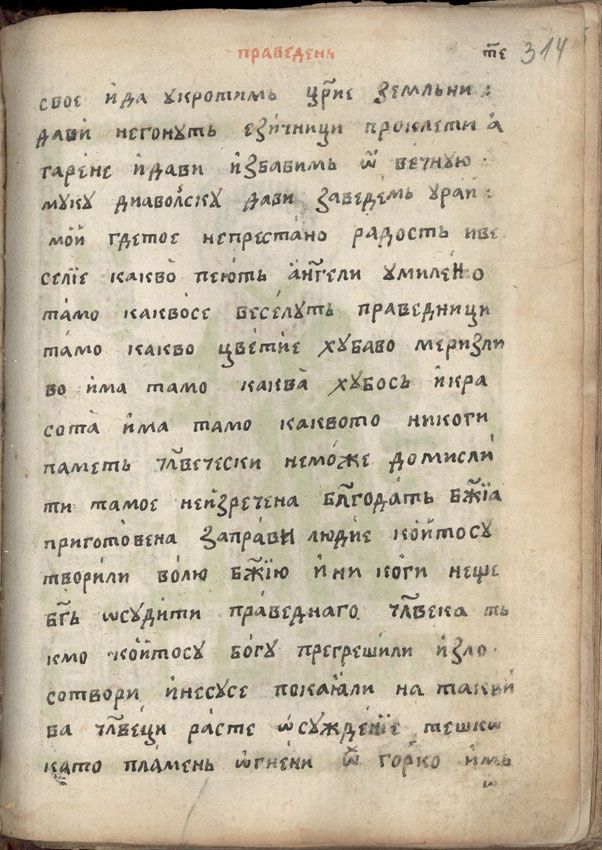 праведень т҃е 314
свое и҆да укротимь цр҃їе земльни :
дави негонуть ези́чници проклети а҆
гаре́не и҆дави и҆збавимь ѿ вечную ·
муку диаволску дави заведемь урай :
мо́й гдетое непреста́но радость иве
селїе какво̀ пею́ть а҆нг҃ели умиле́но
та́мо какво̀се весе́луть праведници
та́мо какво цве́тїе хубаво меризли
во и҆ма тамо каква̀ хубось и҆кра
сота̀ и҆ма тамо каквото никоги
паметь чл҃вечески немо́же домисли́
ти тамое неи҆зречена бл҃года́ть бж҃їа
приготовена запра́ви людїе кои́тосу
твори́ли во́лю бж҃їю и҆ни коги неще
бг҃ь ѡсуди́ти пра́веднаго чл҃века ть
кмо кои́тосу бо́гу прегреши́ли и҆зло ·
сотвори и҆несусе покаꙗ́ли на такви́
ва чл҃ве́ци ра́сте ѡ҆сужде́нїе тешкѡ
като пла́мень ѡ҆гне́ни ѿ го́рко и҆мь
ѡ